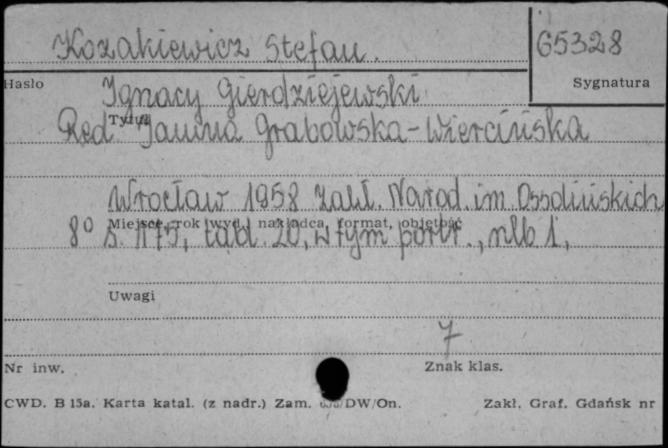 Kozakiewicz Stefan.
65328
Hasło
Sygnatura
Ignacy Gierdziejewski
Tytuł
Red. Janina Grabowska-Wiercińska
Wrocław 1958 Zakł. Narod. im Ossolińskich
Miejsce, rok wyd., nakładca, format, objętość
8° s. 175, tabl. 20, w tym portr., nlb 1,
Uwagi
7
Nr inw.
Znak klas.
CWD. B 15a. Karta katal. (z nadr.) Zam. /DW/On.
Zakł. Graf. Gdańsk nr